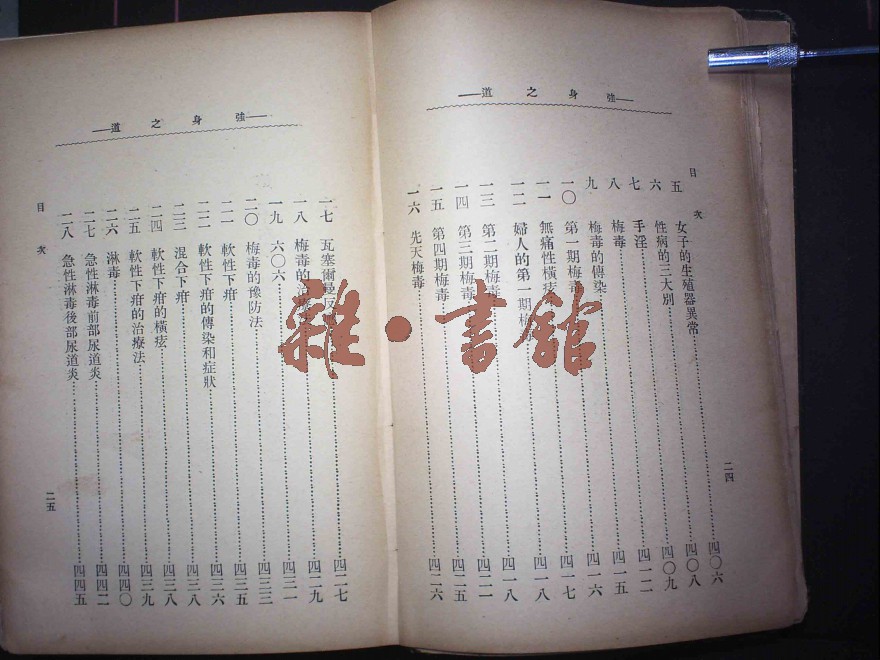 強身之道
目次
五 女子的生殖器異常 四〇六
六 性病的三大別 四〇八
七 手淫 四〇九
八 梅毒 四一二
九 梅毒的傳染 四一五
一〇 第一期梅毒 四一六
一一 無痛性橫痃 四一七
一二 婦人的第一期梅毒 四一八
一三 第二期梅毒 四一八
一四 第三期梅毒 四二一
一五 第四期梅毒 四二五
一六 先天梅毒 四二六
二四
強身之道
一七 瓦塞爾曼反 四二七
一八 梅毒的治療 四二九
一九 六〇六 四三一
二〇 梅毒的豫防法 四三三
二一 軟性下疳 四三五
二二 軟性下疳的傳染和症狀 四三六
二三 混合下疳 四三八
二四 軟性下疳的橫痃 四三八
二五 軟性下疳的治療法 四三九
二六 淋毒 四四〇
二七 急性淋毒前部尿道炎 四四二
二八 急性淋毒後部尿道炎 四四五
目次
二五
雜·書館